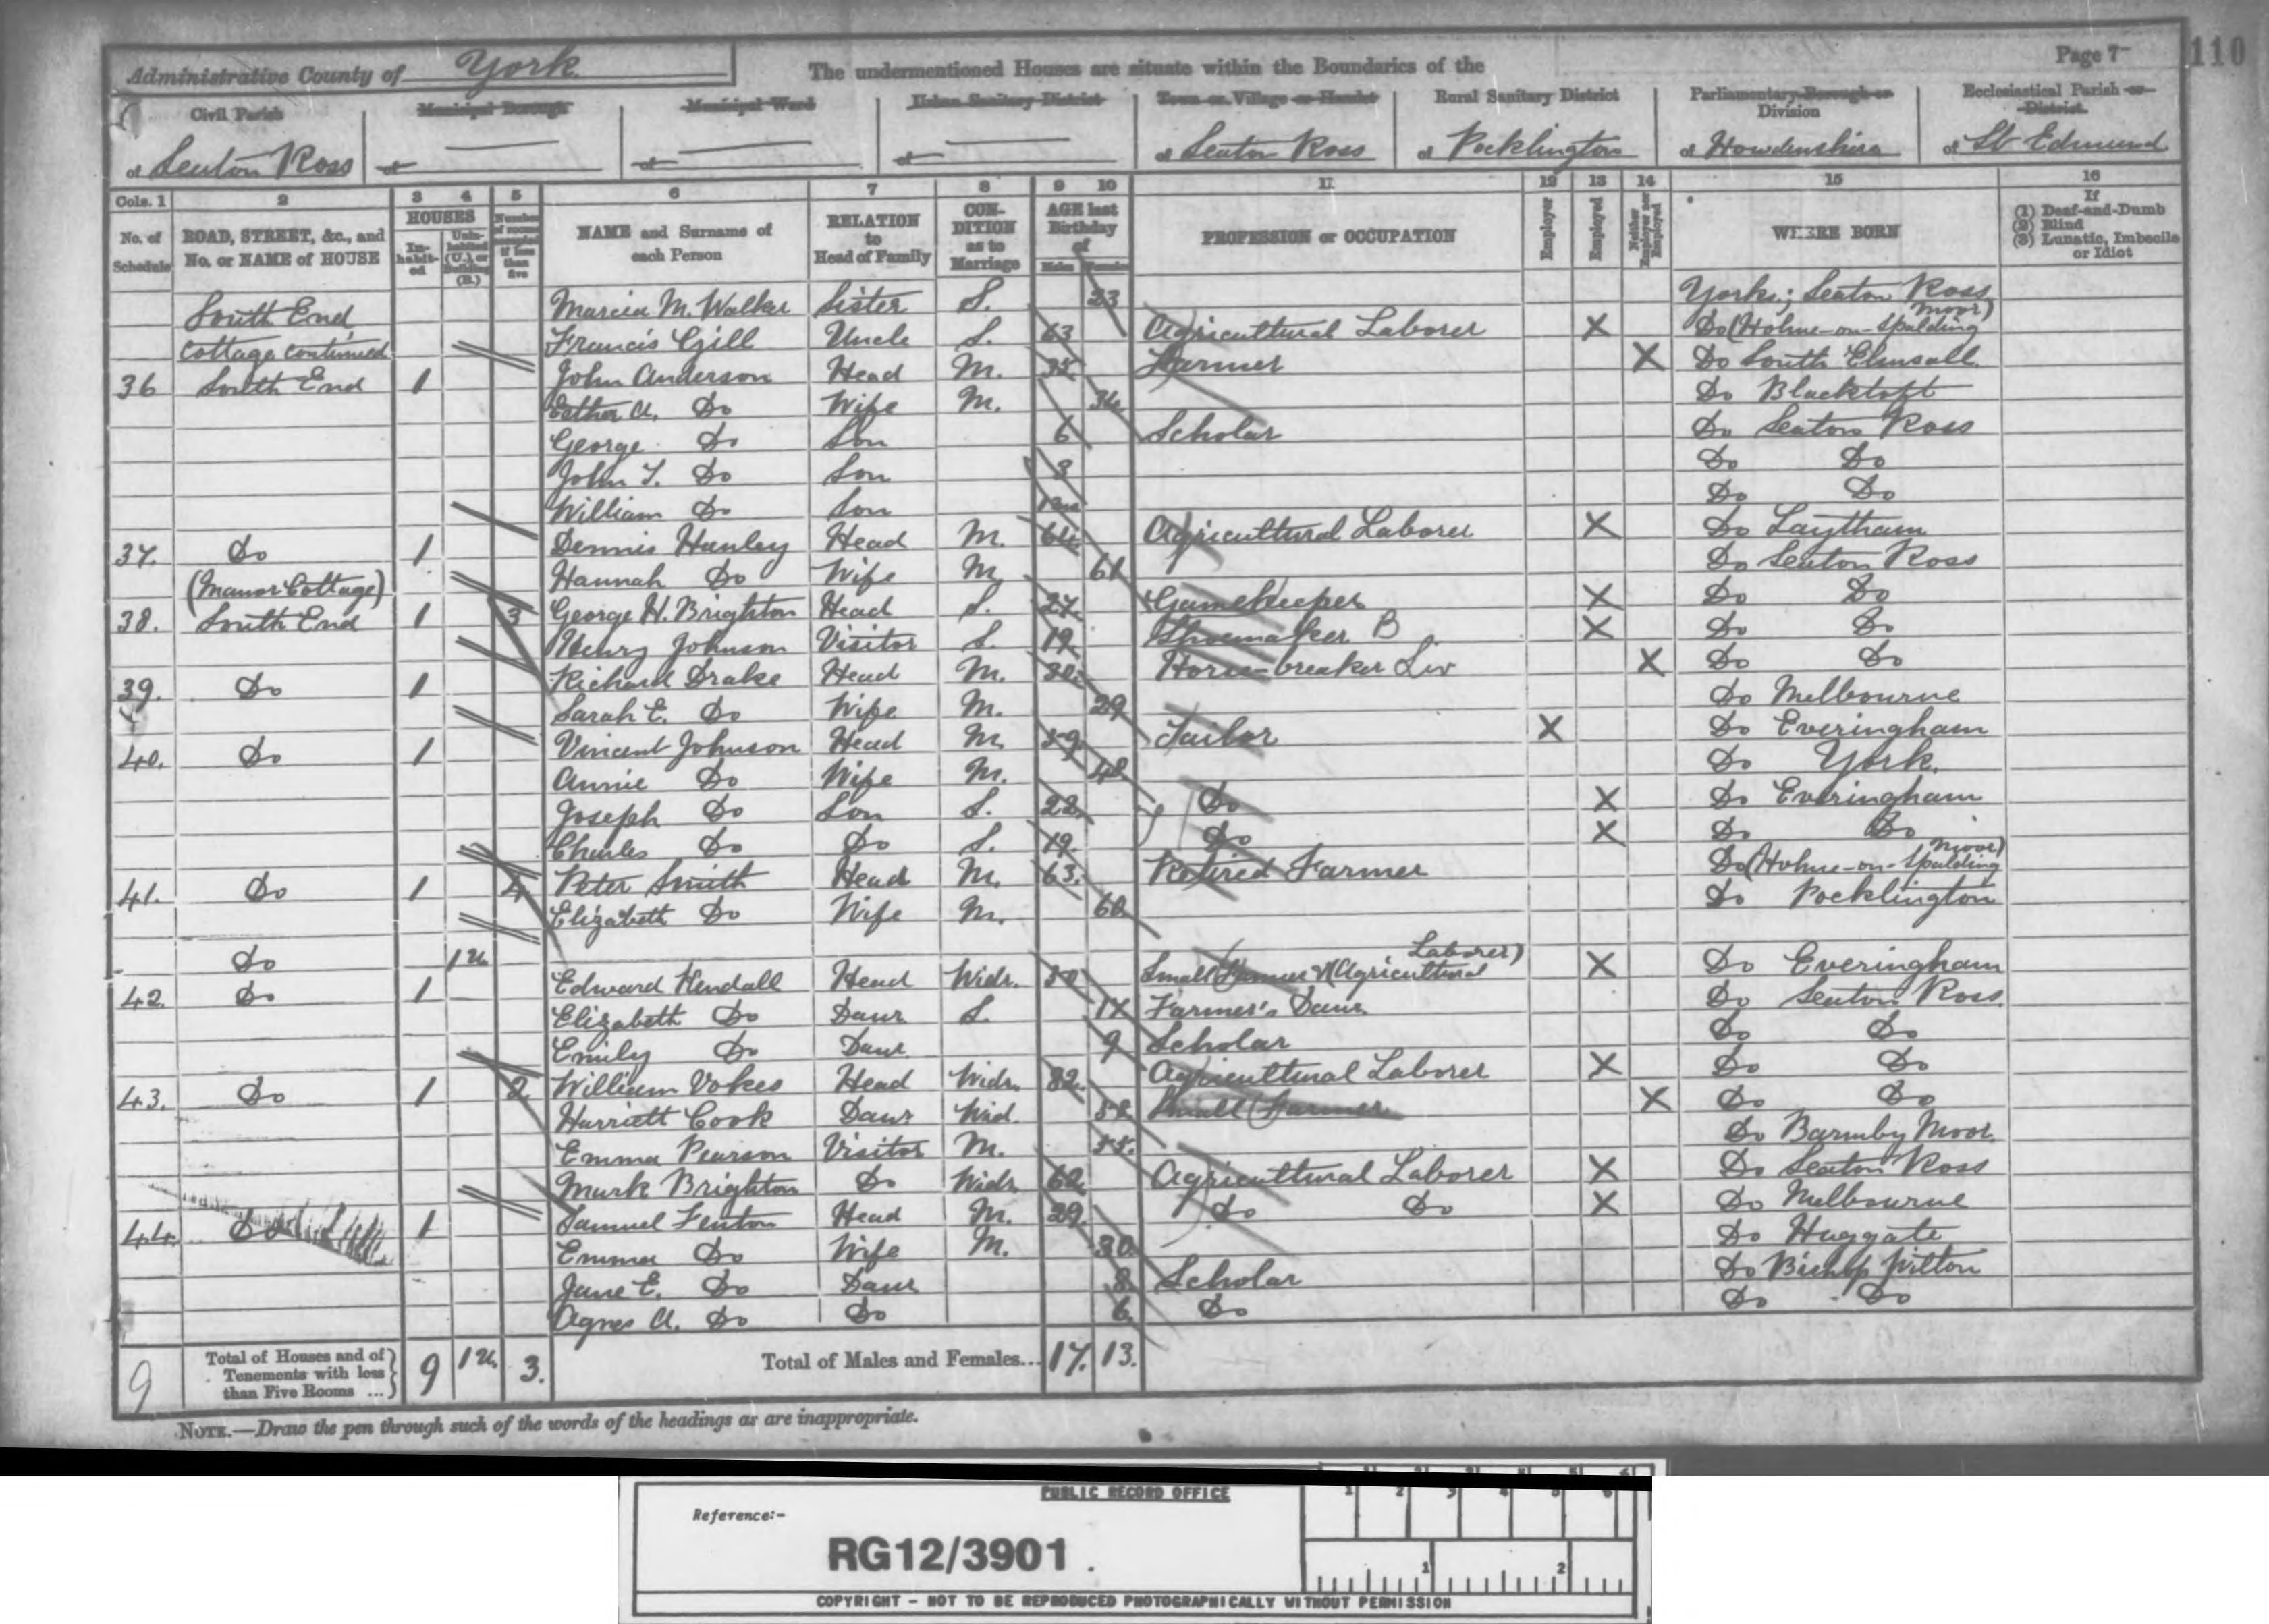 Page 7
110
Administrative County of York
The undermentioned Houses are situate within the Boundaries of the
Civil Parish
of Seaton Ross
Municipal Borough
of
Municipal Ward
of
Urban Sanitary District
of
Town or Village or Hamlet
of Seaton Ross
Rural Sanitary District
of Pocklington
Parliamentary Borough or Division
of Howdenshire
Ecclesiastical Parish or District
of St Edmund
Cols. 1 2 3 4 5 6 7 8 9 10 11 12 13 14 15 16
No. of Schedule
ROAD, STREET, &c., and No. or NAME of HOUSE
HOUSES
Inhabited
Uninhabited (U.) or Building (B.)
Number of rooms occupied if less than five
NAME and Surname of each Person
RELATION to Head of Family
CONDITION as to Marriage
AGE last Birthday of
Males Females
PROFESSION or OCCUPATION
Employer
Employed
Neither Employer nor Employed
WHERE BORN
If
(1) Deaf-and-Dumb
(2) Blind
(3) Lunatic, Imbecile or Idiot
South End Marcia M. Walker Sister S. 23 Yorks; Seaton Ross
Cottage continued Francis Gill Uncle S. 63 Agricultural Laborer X Do (Holme-on-Spalding Moor)
36 South End 1 John Anderson Head M. 35 Farmer X Do South Elmsall
Esther A. Do Wife M. 34 Do Blacktoft
George Do Son 6 Scholar Do Seaton Ross
John T. Do Son 3 Do Do
William Do Son Do Do
37. Do 1 Dennis Hanley Head M. 64 Agricultural Laborer X Do Laytham
(Manor Cottage) Hannah Do Wife M. 61 Do Seaton Ross
38. South End 1 3 George H. Brighton Head S. 27. Gamekeeper X Do Do
Henry Johnson Visitor S. 19. Shoemaker B X Do Do
39. Do 1 Richard Drake Head M. 30. Horse-breaker Liv X Do Do
Sarah E. Do Wife M. 29 Do Melbourne
40. Do 1 Vincent Johnson Head M. 59. Tailor X Do Everingham
Annie Do Wife M. 48 Do York.
Joseph Do Son S. 22. Do X Do Everingham
Charles Do Do S. 19. Do X Do Do
41. Do 1 4 Peter Smith Head M. 63. Retired Farmer Do (Holme-on-Spalding Moor)
Elizabeth Do Wife M. 60 Do Pocklington
Do 1 U.
42. Do 1 Edward Kendall Head Widr. 50 Small Farmer & (Agricultural Laborer) X Do Everingham
Elizabeth Do Daur S. 17 Farmer's Daur. Do Seaton Ross
Emily Do Daur 9 Scholar Do Do
43. Do 1 2 William Vokes Head Widr. 82. Agricultural Laborer X Do Do
Harriett Cook Daur Wid. Small Farmer X Do Do
Emma Pearson Visitor M. 55. Do Barmby Moor
Mark Brighton Do Widr 62 Agricultural Laborer X Do Seaton Ross
44. Do 1 Samuel Fenton Head M. 29. Do Do X Do Melbourne
Emma Do Wife M. 30. Do Huggate
Jane E. Do Daur 8. Scholar Do Bishop Wilton
Agnes A. Do Do 6. Do Do Do
9
Total of Houses and of Tenements with less than Five Rooms ... 9 1 U. 3.
Total of Males and Females... 17. 13.
NOTE.—Draw the pen through such of the words of the headings as are inappropriate.
PUBLIC RECORD OFFICE
1 2 3 4 5 6
Reference:-
RG12/3901
1 2
COPYRIGHT - NOT TO BE REPRODUCED PHOTOGRAPHICALLY WITHOUT PERMISSION